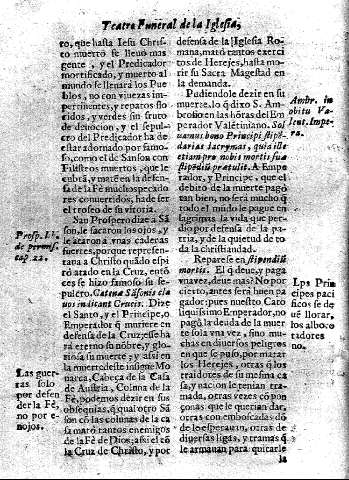 Teatro Funeral de la Iglesia,
to, que hasta Iesu Chris-
to muerto se lleuò mas
gente, y el Predicador
mortificado, y muerto al
mundo se llenarà los Pue
blos, no con viuezas im-
pertinentes, y reparos flo
ridos, y verdes sin fruto
de deuocion, y el sepul-
cro del Predicador ha de
estar adornado por famo-
so, como el de Sanson con
Filisteos muertos, que le
cubrà, y maten en defensa
de la Fè muchos pecado
res conuertidos, hade ser
el trofeo de su vitoria.
San Prospero dize a Sã
son, le sacaron los ojos, y
le ataron vnas cadenas
fuertes, porque represen-
taua a Christo quãdo espi
rò atado en la Cruz, entõ
ces se hizo famoso su se-
pulcro. Catena Sãsonis cla
uos indicant Crucis. Dize
el Santo, y el Principe, o
Emperador q̃ muriere en
defensa de la Cruz, esse ha
rà eterno su nõbre, y glo-
riosa su muerte, y assi en
la muerte deste insigne Mo
narca, Cabeça de la Casa
de Austria, Coluna de la
Fè, podemos dezir en sus
obsequias, q̃ qual otro Sã
son cõ las colunas de la ca
sa matò tantos enemigos
de la Fè de Dios; assi el cõ
la Cruz de Christo, y por
Prosp. li.
de permiss.
cap. 22.
Las gue-
rras solo
por defen
der la Fè,
no por e-
nojos.
defensa de la Iglesia Ro-
mana, matò tantos exerci
tos de Herejes, hasta mo-
rir su Sacra Magestad en
la demanda.
Pudiendole dezir en su
muerte, lo q̃ dixo S. Am-
brosio en las hõras del Em
perador Valẽtiniano. Sol
uamus bono Principi stipẽ-
darias lacrymas, quia ille
etiam pro nobis mortis suæ
stipẽdia præstulit. A Empe-
rador, y Principe, que el
debito de la muerte pagò
tan bien, no serà mucho q̃
todo el mũdo le pague en
lagrimas la vida que per-
dio por defensa de la pa-
tria, y de la quietud de to-
da la christiandad.
Reparese en stipendiũ
mortis. El q̃ deue, y paga
vna vez, deue mas? No por
cierto, antes serà buen pa-
gador: pues nuestro Cato
liquissimo Emperador, no
pagò la deuda de la muer
te sola vna vez, sino mu-
chas en diuersos peligros
en que se puso, por matar
los Herejes, otras q̃ los
traidores de su mesma ca
sa, y nacion le tenian tra-
mada, otras vezes cõ pon
çonas que le querian dar,
otras con emboscadas dõ
de lo esperauan, otras de
diuersas ligas, y tramas q̃
le armauan para quitarle
la
Ambr. in
obitu Va
lent. Impe-
ra.
Los Prin
cipes pa-
cificos se de
uẽ llorar,
los alboro
tadores
no.